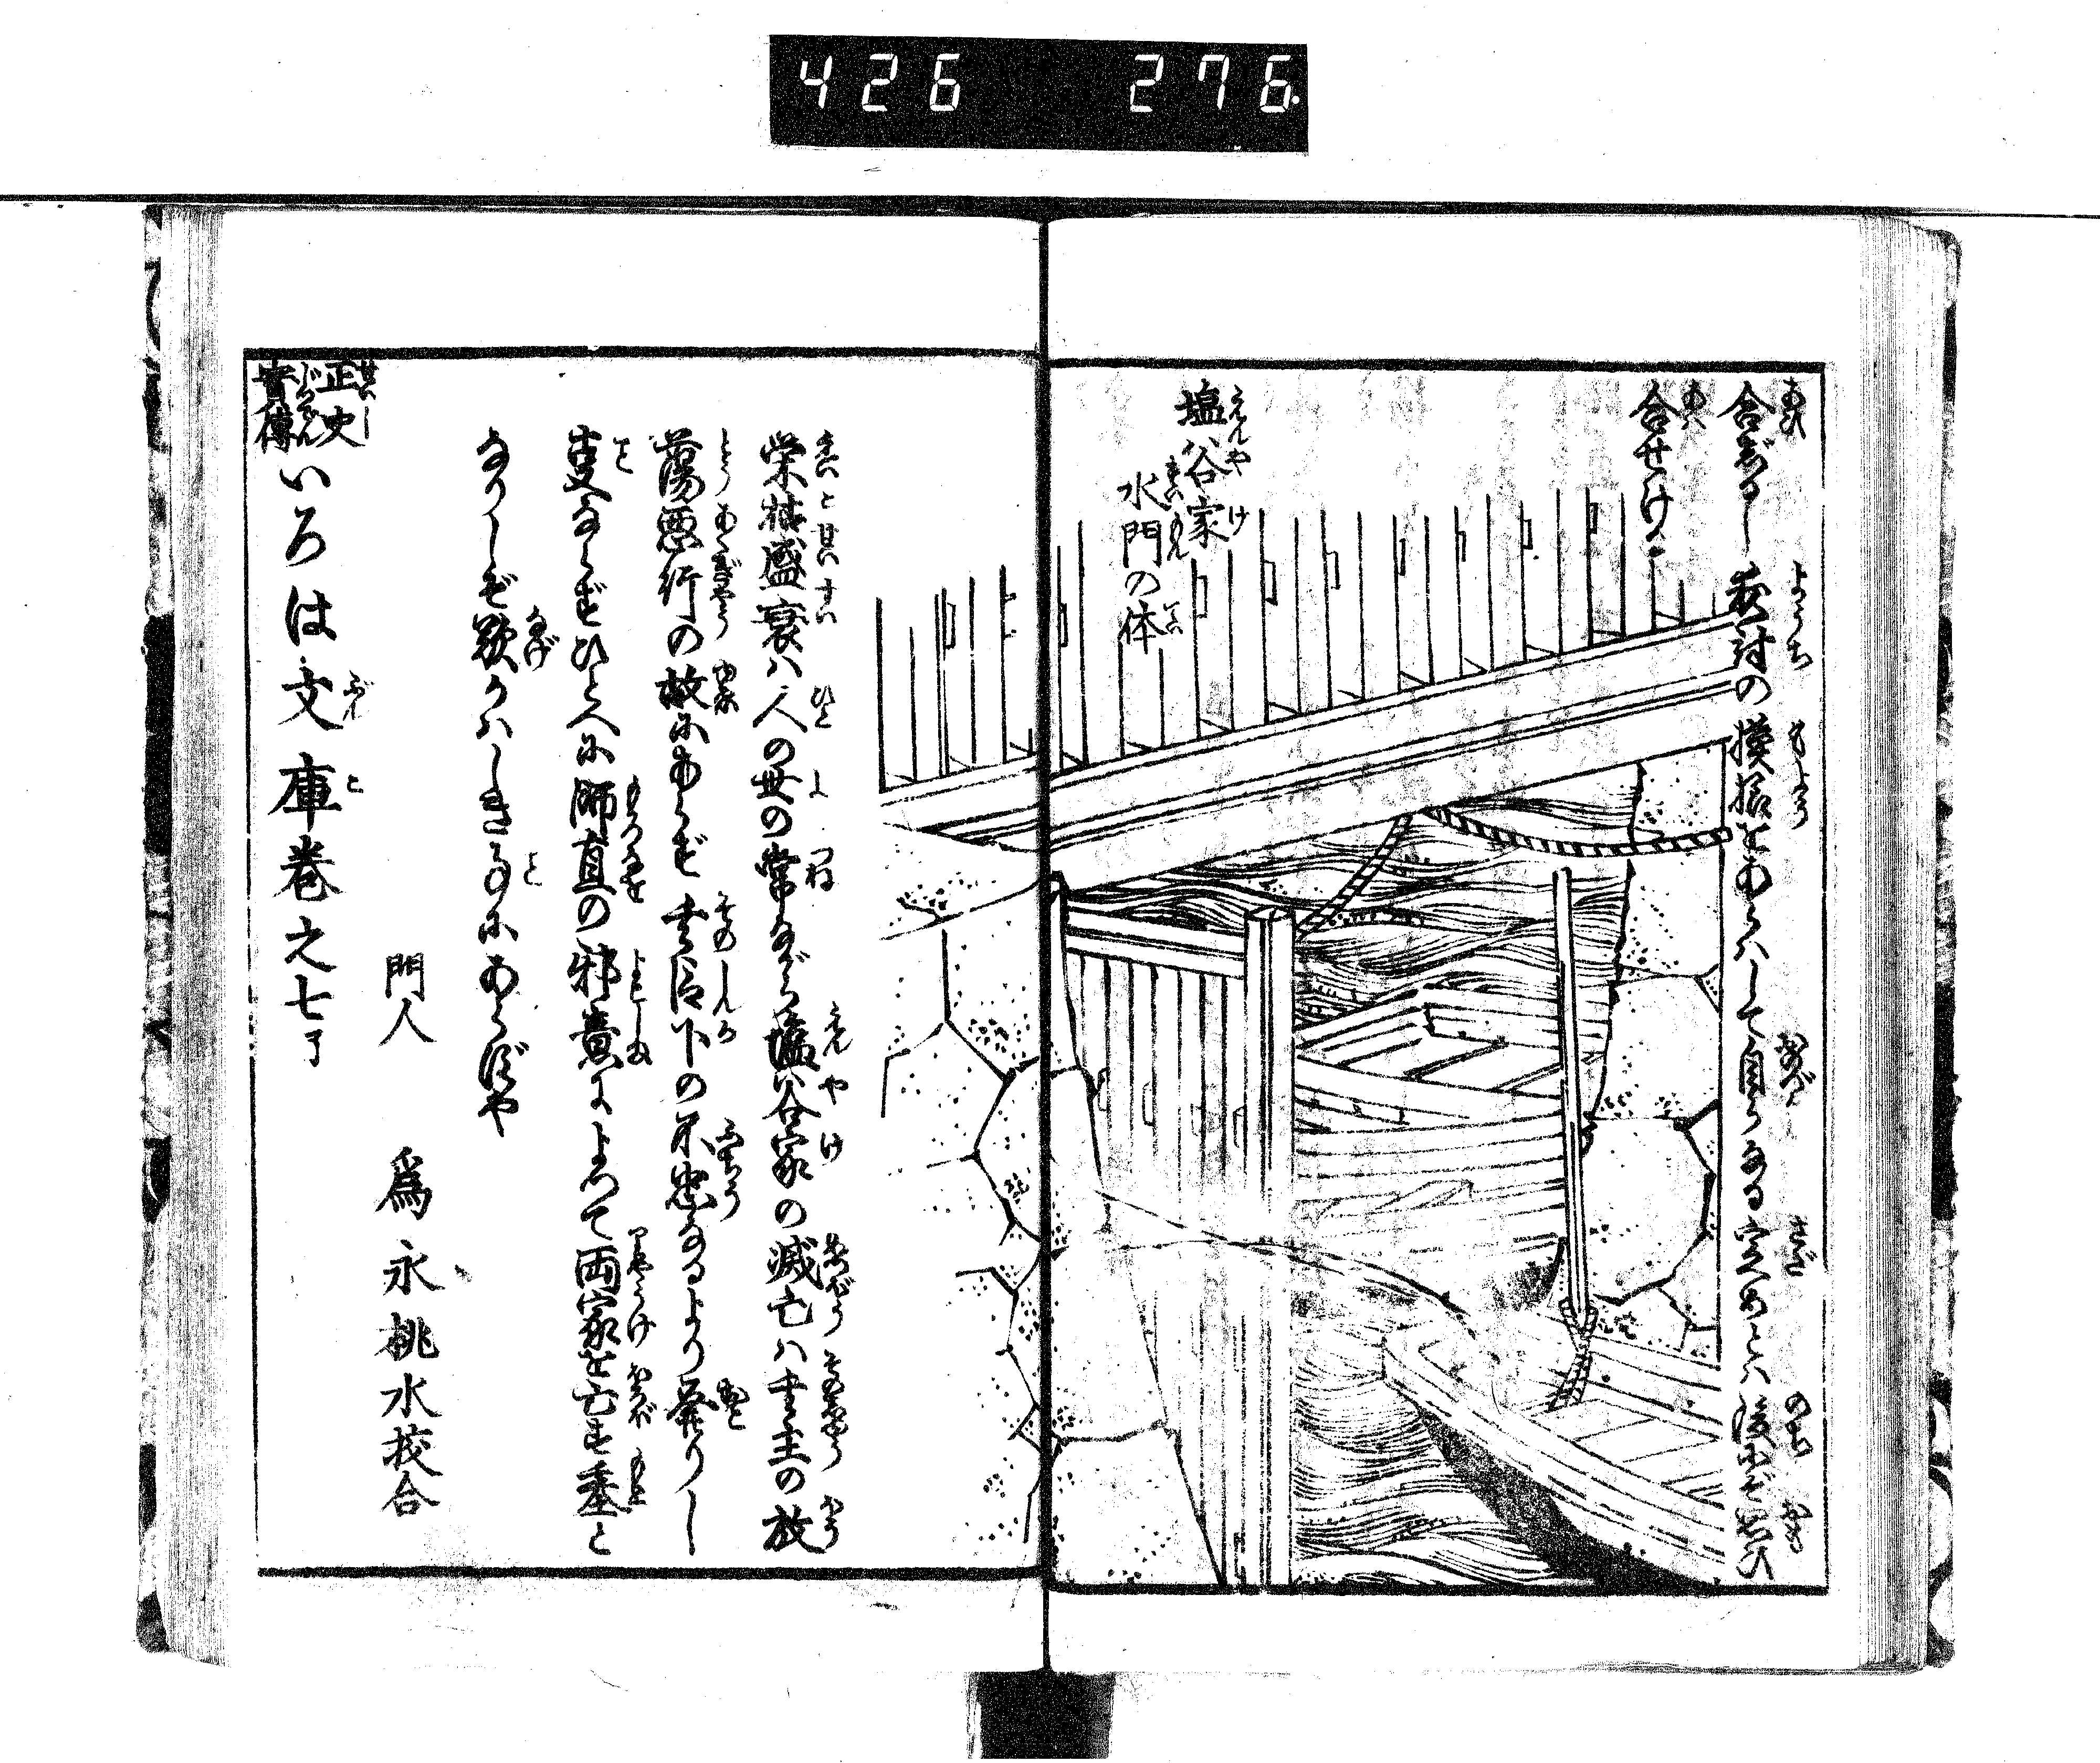 426 276
合がたし夜討の模揺をあらハして自らなる定めとハ後にぞ思ひ
合せけ
塩谷家
水門の体
栄枯盛衰ハ人の世の常ながら塩谷家の滅亡ハ其主の放
蕩悪行の故にあらず其臣下の不忠なるより発りし
事ならずひとへに師直の邪意によつて両家を亡す基と
なりしぞ歎かハしき事にあらずや
門人 為永桃水挍合
正史
実傳
いろは文庫巻之七了